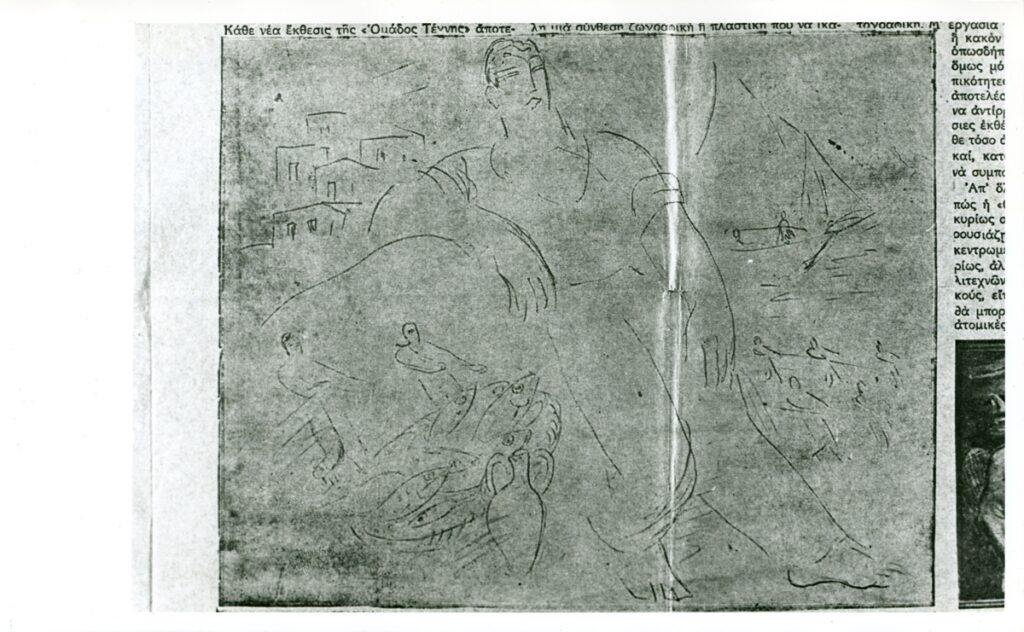 Κάθε νέα ἔκθεσις τῆς «Ὁμάδος Τέχνης» ἀποτε-
λῆ μιὰ σύνθεση ζωγραφικὴ ἢ πλαστικὴ ποὺ νὰ ἱκα-
τογραφική. Μ' ἐργασία
ἢ κακὸν
ὁπωσδήπ
ὅμως μό
πικότητες
ἀποτελέσ
να ἀντίρρ
σιες ἐκθέ
θε τόσο ἀ
καί, κατ
νὰ συμπα
Ἀπ' ὅλ
πὼς ἡ «
κυρίως σ
ρουσιάζη
κεντρωμέ
ρίως, ἀλ
λιτεχνῶν
κούς, εἴτ
θὰ μπορ
ἀτομικές